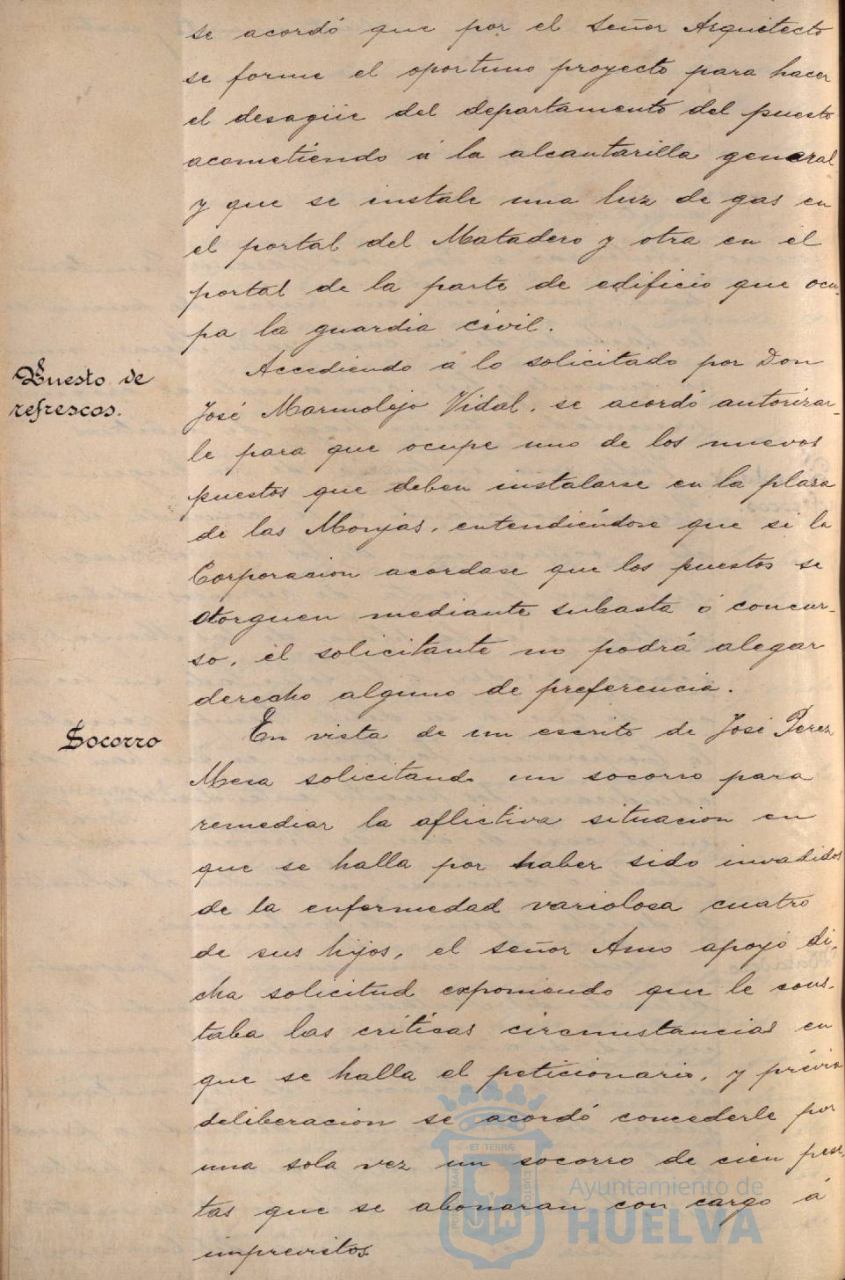 se acordó que por el señor Arquitecto
se forme el oportuno proyecto para hacer
el desagüe del departamento del puesto
acometiendo á la alcantarilla general
y que se instale una luz de gas en
el portal del Matadero y otra en el
portal de la parte de edificio que ocu-
pa la guardia civil.
Puesto de
refrescos.
Accediendo á lo solicitado por Don
José Marmolejo Vidal, se acordó autorizar-
le para que ocupe uno de los nuevos
puestos que deben instalarse en la plaza
de las Monjas, entendiéndose que si la
Corporacion acordase que los puestos se
otorguen mediante subasta ó concur-
so, el solicitante no podrá alegar
derecho alguno de preferencia.
Socorro
En vista de un escrito de José Perez
Mesa solicitando un socorro para
remediar la aflictiva situacion en
que se halla por haber sido invadidos
de la enfermedad variolosa cuatro
de sus hijos, el señor Amo apoyó di-
cha solicitud exponiendo que le cons-
taba las críticas circunstancias en
que se halla el peticionario, y prévia
deliberacion se acordó concederle por
una sola vez un socorro de cien pese-
tas que se abonaran con cargo á
imprevistos
ET TERRÆ
Ayuntamiento de
HUELVA